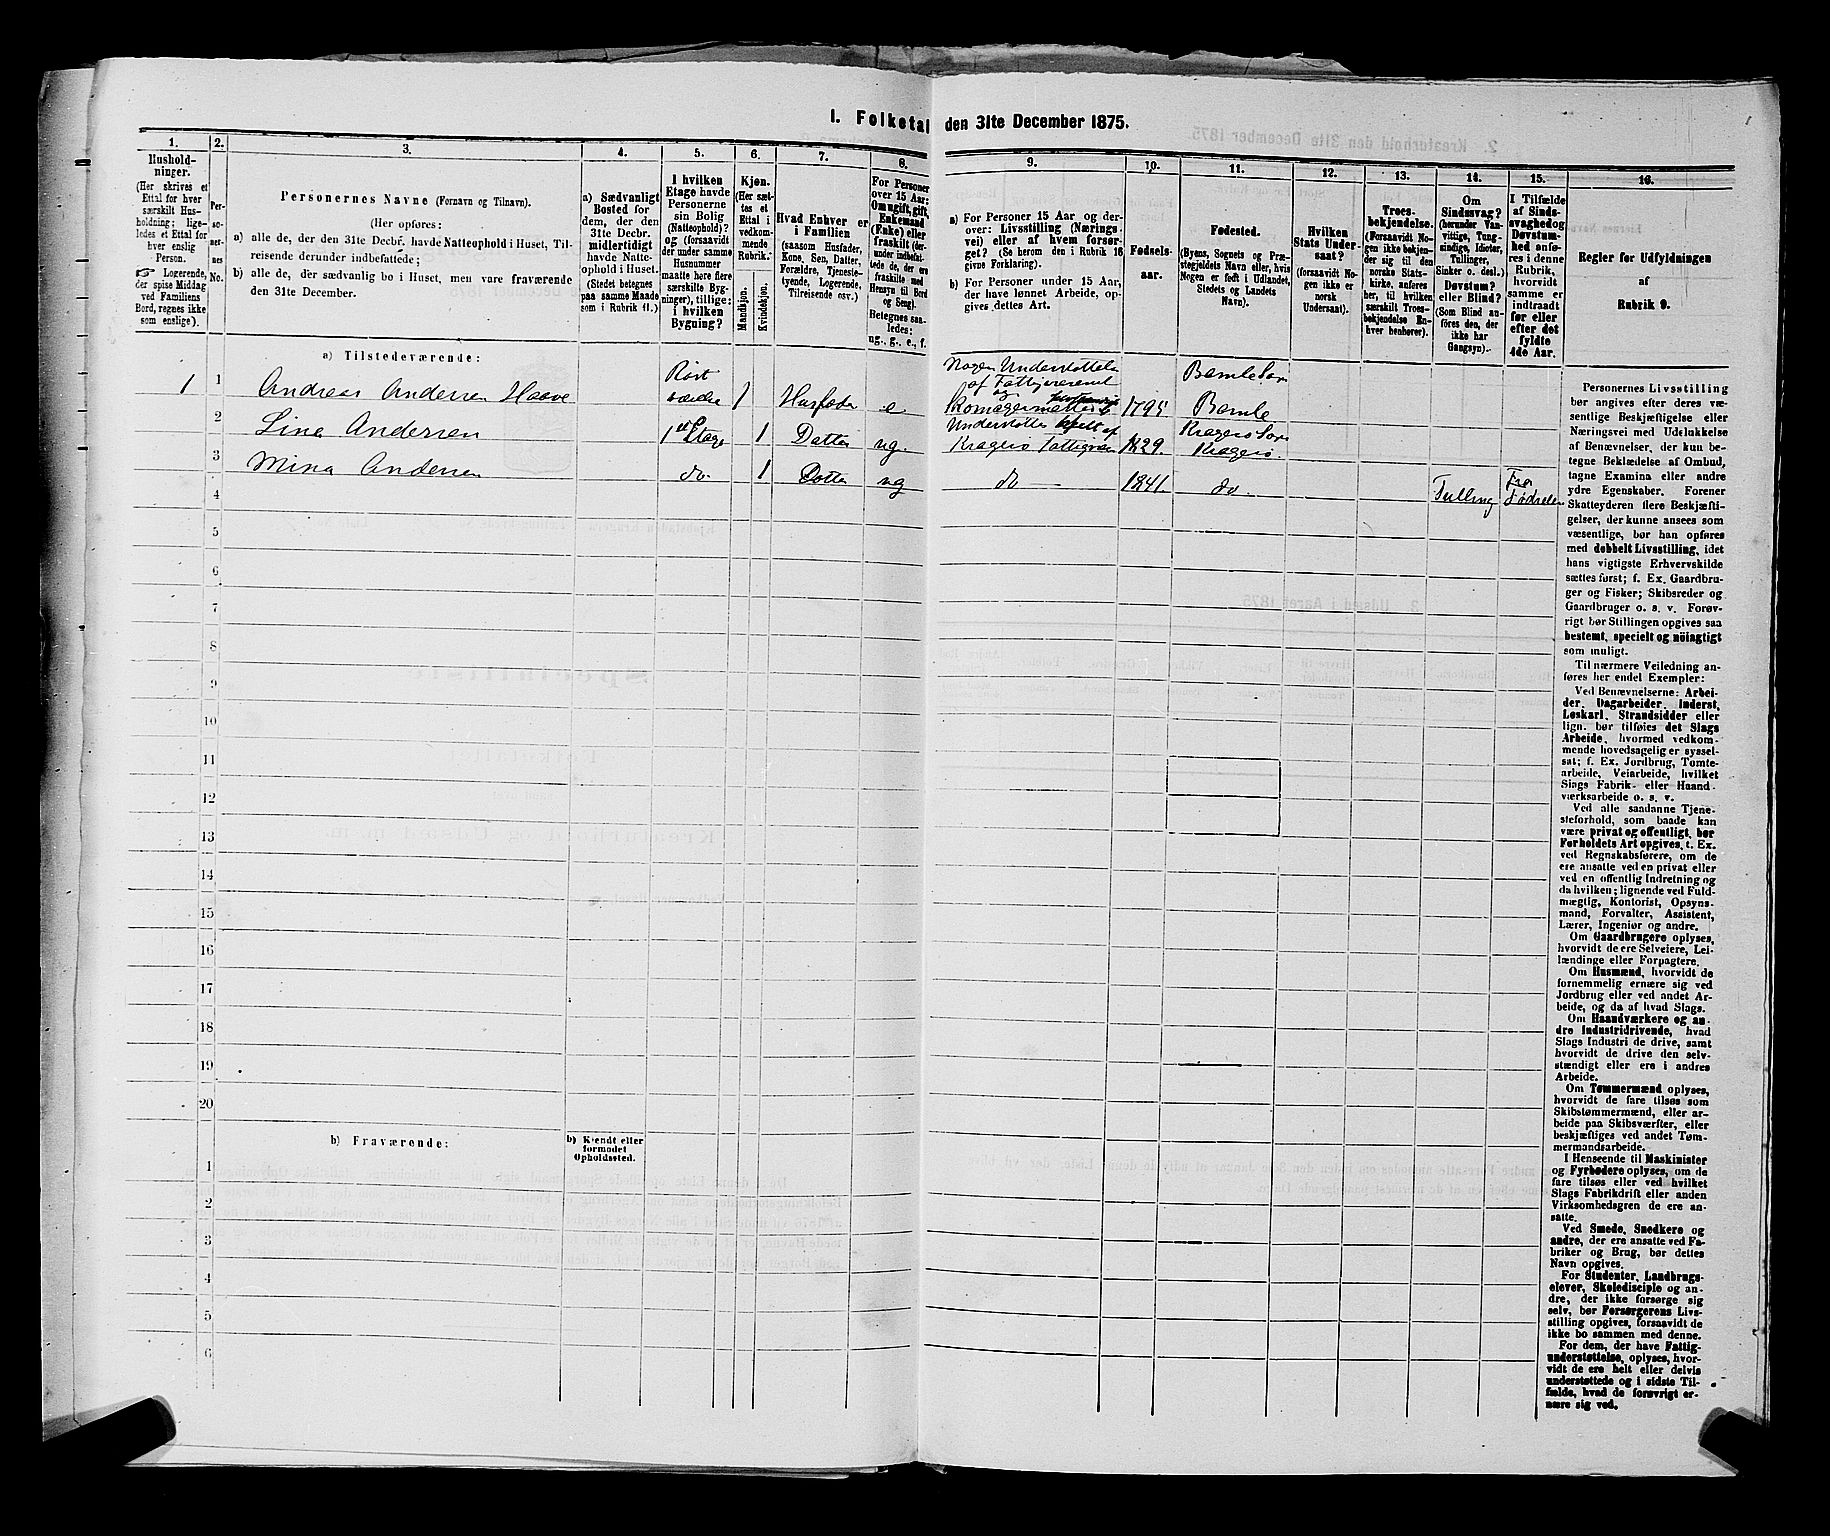 1. Folketal den 31te December 1875.
1.
2.
3.
4.
5.
6.
7.
8.
9.
10.
11.
12.
13.
14.
15.
16.
Hushold-
ninger.
(Her skrives et
Ettal for hver
særskilt Hus-
holdning; lige-
ledes et Ettal for
hver enslig
Person.
Logerende,
der spise Middag
ved Familiens
Bord, regnes ikke
som enslige).
Per-
so-
ner-
nes
No.
Personernes Navne (Fornavn og Tilnavn).
(Her opføres:
a) alle de, der den 31te Decbr. havde Natteophold i Huset, Til-
reisende derunder indbefattede;
b) alle de, der sædvanlig bo i Huset, men vare fraværende
den 31te December.
a) Sædvanligt
Bosted for
dem, der den
31te Decbr.
midlertidigt
havde Natte-
ophold i Huset.
(Stedet betegnes
paa samme Maade
som i Rubrik 11.)
I hvilken
Etage havde
Personerne
sin Bolig
(Natteophold)?
og (forsaavidt
der under samme
Husnummer
maatte here flere
særskilte Byg-
ninger), tillige:
i hvilken
Bygning?
Kjøn.
(Her sæt-
tes et
Ettal i
vedkom-
mende
Rubrik.
Mandkjøn.
Kvindekjøn.
Hvad Enhver er
i Familien
(saasom Husfader,
Kone, Søn, Datter,
Forældre, Tjeneste-
tyende, Logerende,
Tilreisende osv.)
For Personer
over 15 Aar:
Om ugift, gift,
Enkemand
(Enke) eller
fraskilt (der-
under indbefat-
tede de, der ere
fraskilte med
Hensyn til Bord
og Seng).
Betegnes saa-
ledes:
ug., g., e., f.
a) For Personer 15 Aar og der-
over: Livsstilling (Nærings-
vei) eller af hvem forsør-
get? (Se herom den i Rubrik 16
givne Forklaring).
b) For Personer under 15 Aar,
der have lønnet Arbeide, op-
gives dettes Art.
Fødsels-
aar.
Fødested.
(Byens, Sognets og Præ-
stegjeldets Navn eller, hvis
Nogen er født i Udlandet,
Stedets og Landets
Navn).
Hvilken
Stats Under-
saat?
(forsaavidt No-
gen ikke er
norsk
Undersaat).
Troes-
bekjendelse.
(Forsaavidt No-
gen ikke bekjen-
der sig til den
norske Stats-
kirke, anføres
her, til hvilken
særskilt Troes-
bekjendelse En-
hver henhører).
Om
Sindssvag?
(herunder Van-
vittige, Tung-
sindige, Idioter,
Tullinger,
Sinker o. desl.)
Døvstum?
eller Blind?
(Som Blind an-
føres den, der
ikke har
Gangsyn).
I Tilfælde
af Sinds-
svaghed og
Døvstum-
hed anfø-
res i denne
Rubrik,
hvorvidt
samme er
indtraadt
før eller
efter det
fyldte
4de Aar.
Regler for Udfyldningen
af
Rubrik 9.
a) Tilstedeværende:
1 1 Andreas Andersen Haave 1 Husfader e 1795 Bamle
2 Lina Andersen 1ste Etage 1 Datter ug. 1829. Kragerø
3 Mina Andersen do. 1 Datter ug do 1841 do. Tulling Fra Fødselen
4
5
6
7
8
9
10
11
12
13
14
15
16
17
18
19
20
b) Fraværende:
b) Kjendt eller
formodet
Opholdssted.
1
2
3
4
5
6
Personernes Livsstilling
bør angives efter deres væ-
sentlige Beskjæftigelse eller
Næringsvei med Udelukkelse
af Benævnelser, der kun be-
tegne Beklædelse af Ombud,
tagne Examina eller andre
ydre Egenskaber. Forener
Skatteyderen flere Beskjæfti-
gelser, der kunne ansees som
væsentlige, bør han opføres
med dobbelt Livsstilling, idet
hans vigtigste Erhvervskilde
sættes først; f. Ex. Gaardbru-
ger og Fisker; Skibsreder og
Gaardbruger o. s. v. Forøv-
rigt bør Stillingen opgives saa
bestemt, specielt og nöiagtigt
som muligt.
Til nærmere Veiledning an-
føres her endel Exempler:
Ved Benævnelserne: Arbei-
der, Dagarbeider, Inderst,
Løskarl, Strandsidder eller
lign. bør tilføies det Slags
Arbeide, hvormed vedkom-
mende hovedsagelig er syssel-
sat; f. Ex. Jordbrug, Tomte-
arbeide, Veiarbeide, hvilket
Slags Fabrik- eller Haand-
værksarbeide o. s. v.
Ved alle saadanne Tjene-
steforhold, som baade kan
være privat og offentligt, bør
Forholdets Art opgives, t. Ex.
ved Regnskabsførere, om de
ere ansatte ved en privat eller
ved en offentlig Indretning og
da hvilken; lignende ved Fuld-
mægtig, Kontorist, Opsyns-
mand, Forvalter, Assistent,
Lærer, Ingeniør og andre.
Om Gaardbrugere oplyses,
hvorvidt de ere Selveiere, Lei-
lændinge eller Forpagtere.
Om Husmænd, hvorvidt de
fornemmelig ernære sig ved
Jordbrug eller ved andet Ar-
beide, og da af hvad Slags.
Om Haandværkere og an-
dre Industridrivende, hvad
Slags Industri de drive, samt
hvorvidt de drive den selv-
stændigt eller ere i andres
Arbeide.
Om Tømmermænd oplyses,
hvorvidt de fare tilsøs som
Skibstømmermænd, eller ar-
beide paa Skibsværfter, eller
beskjæftiges ved andet Tøm-
mermandsarbeide.
I Henseende til Maskinister
og Fyrbødere oplyses, om de
fare tilsøs eller ved hvilket
Slags Fabrikdrift eller anden
Virksomhedsgren de ere an-
satte.
Ved Smede, Snedkere og
andre, der ere ansatte ved Fa-
briker og Brug, bør dettes
Navn opgives.
For Studenter, Landbrugs-
elever, Skoledisciple og an-
dre, der ikke forsørge sig
selv, bør Forsørgerens Livs-
stilling opgives, forsaavidt de
ikke bo sammen med denne.
For dem, der have Fattig-
understøttelse, oplyses, hvor-
vidt de ere helt eller delvis
understøttede og i sidste Til-
fælde, hvad de forøvrigt er-
nære sig ved.